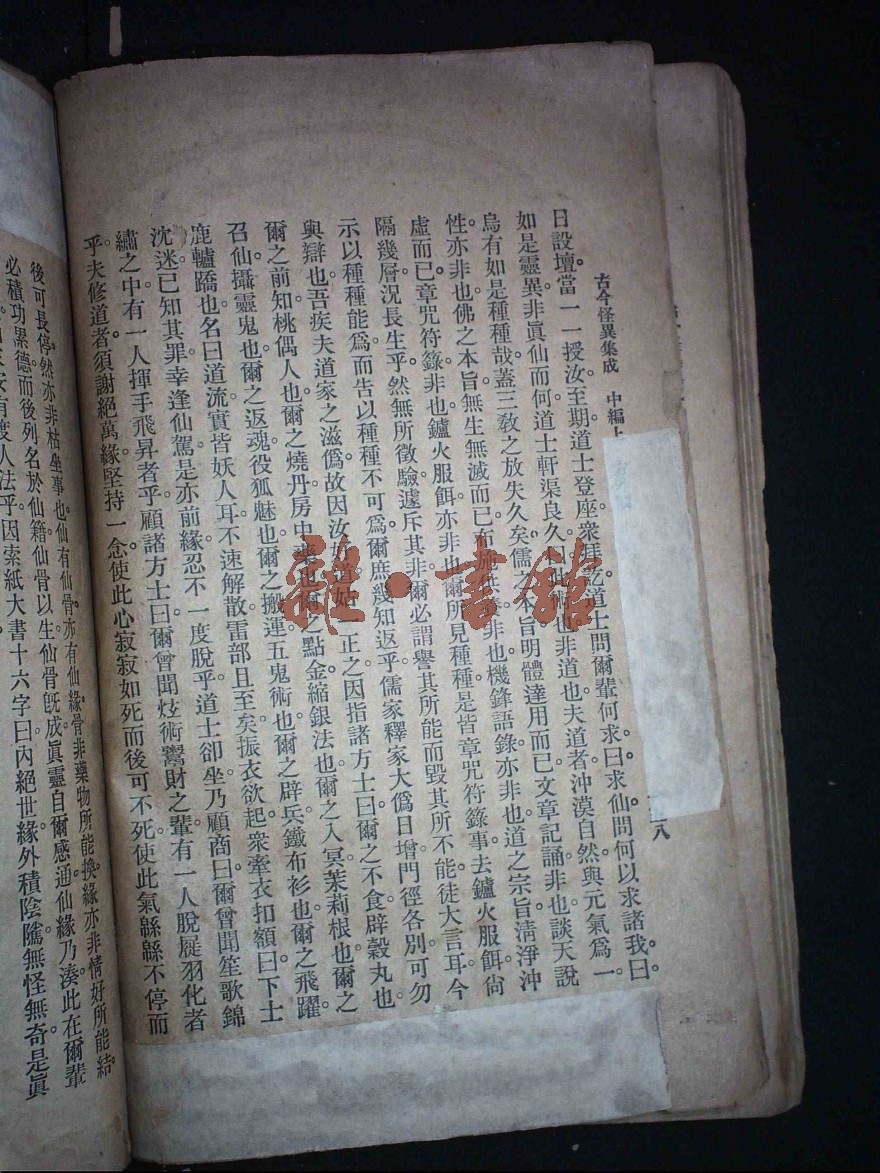 古今怪異集成 中編上
日設壇當一一授汝至期道士登座衆拜訖道士問爾輩何求曰求仙問何以求諸我曰。
如是靈異非眞仙而何道士軒渠良久曰此術也非道也夫道者沖漠自然與元氣爲一。
烏有如是種種哉蓋三敎之放失久矣儒之本旨明體達用而已文章記誦非也談天說
性亦非也佛之本旨無生無滅而已布施供養非也機鋒語錄亦非也道之宗旨淸淨沖
虛而已章咒符籙非也鑪火服餌亦非也爾所見種種是皆章咒符籙事去鑪火服餌尙
隔幾層況長生乎然無所徵驗遽斥其非爾必謂譽其所能而毀其所不能徒大言耳今
示以種種能爲而告以種種不可爲爾庶幾知返乎儒家釋家大僞日增門徑各別可勿
與辯也吾疾夫道家之滋僞故因汝好道姑一正之因指諸方士曰爾之不食辟穀丸也
爾之前知桃偶人也爾之燒丹房中藥也爾之點金縮銀法也爾之入冥茉莉根也爾之
召仙攝靈鬼也爾之返魂役狐魅也爾之搬運五鬼術也爾之辟兵鐵布衫也爾之飛躍
鹿轤蹻也名曰道流實皆妖人耳不速解散雷部且至矣振衣欲起衆牽衣扣額曰下士
沈迷已知其罪幸逢仙駕是亦前緣忍不一度脫乎道士卻坐乃顧商曰爾曾聞笙歌錦
繡之中有一人揮手飛昇者乎顧諸方士曰爾曾聞炫術鬻財之輩有一人脫屣羽化者
乎夫修道者須謝絕萬緣堅持一念使此心寂寂如死而後可不死使此氣緜緜不停而
八
後可長停然亦非枯坐事也仙有仙骨亦有仙緣骨非藥物所能換緣亦非情好所能結。
必積功累德而後列名於仙籍仙骨以生仙骨旣成眞靈自爾感通仙緣乃湊此在爾輩
有度人法乎因索紙大書十六字曰內絕世緣外積陰隲無怪無奇是眞
龍·書館